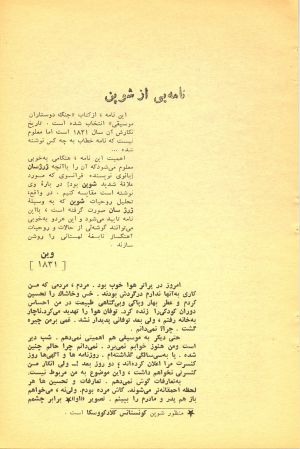 نامه‌یی از شوپن
این نامه ، از کتاب «جنگ دوستداران
موسیقی» انتخاب شده است . تاریخ
نگارش آن سال ۱۸۳۱ است اما معلوم
نیست که نامه خطاب به چه کس نوشته
شده ...
اهمیت این نامه ، هنگامی به‌خوبی
معلوم می‌شود که آن را با آنچه ژرژسان
(بانوی نویسنده فرانسوی که مورد
علاقهٔ شدید شوپن بود) در بارهٔ وی
نوشته است مقایسه کنیم . در واقع،
تحلیل روحیات شوپن که به وسیلهٔ
ژرژ سان صورت گرفته است ، با این
نامه تایید می‌شود و این هردو به‌خوبی
می‌توانند گوشه‌ئی از حالات و روحیات
آهنگساز نابغهٔ لهستانی را روشن
سازند .
وین
[ ۱۸۳۱ ]
امروز در پراتر هوا خوب بود . مردم ، مردمی که من
کاری به‌آنها ندارم در گردش بودند . خس و خاشاک را تحسین
کردم و عطر بهار وپاکی وبی‌گناهی طبیعت در من احساس
دوران کودکی‌را زنده کرد. توفان هوا را تهدید می‌کرد. ناچار
به‌خانه رفتم ، ولی بعد توفانی پدیدار نشد. غمی برمن چیره
گشت . چرا؟ نمی‌دانم .
حتی دیگر به موسیقی هم اهمیتی نمی‌دهم . شب دیر
است ومن هنوز خوابم نمی‌برد . نمی‌دانم چرا حالم چنین
شده . روزنامه ها و آگهی‌ها روز
کنسرت مرا اعلان کرده‌اند ، و دو روز بعد ... ولی انگار من
کنسرتی نخواهم داشت ، و این موضوع به من مربوط نیست.
به‌تعارفات گوش نمی‌دهم . تعارفات و تحسین ها هر
لحظه احمقانه‌تر می‌شوند. کاش مرده بودم. ولی‌نه ، می‌خواهم
باز هم پدر و مادرم را ببینم . تصویر برابر چشمم
* منظور شوپن کونستانس گلادکووسکا است .